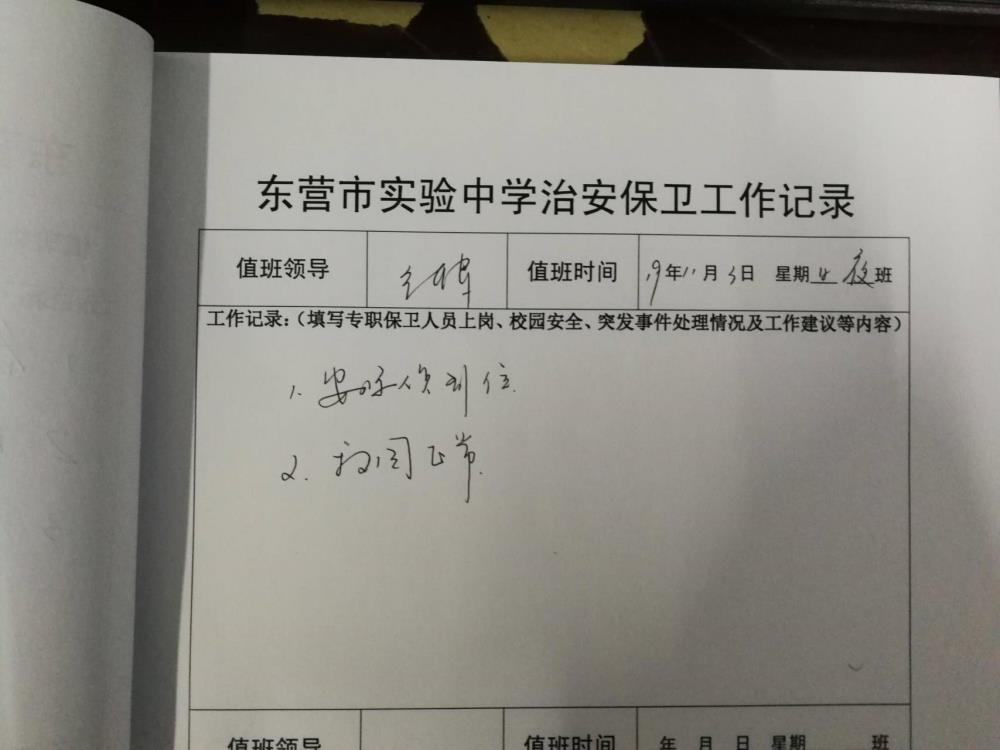 东营市实验中学治安保卫工作记录
值班领导 值班时间 19年11月3日 星期 夜班
工作记录：（填写专职保卫人员上岗、校园安全、突发事件处理情况及工作建议等内容）
1. 安保人员到位.
2. 校园正常.
值班领导 值班时间 年 月 日 星期 班